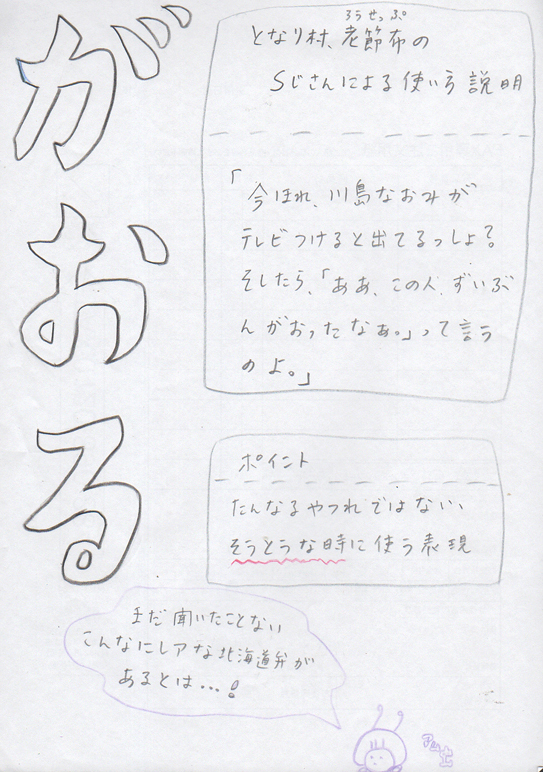 がおる
ろうせっぷ
となり村、老節布の
Sじさんによる使い方説明
「今ほれ、川島なおみが
テレビつけると出てるっしょ?
そしたら、「ああ、この人、ずいぶ
んがおったなぁ。」って言う
のよ。」
ポイント
たんなるやつれではない、
そうとうな時に使う表現
まだ聞いたことない
こんなにレアな北海道弁が
あるとは…!